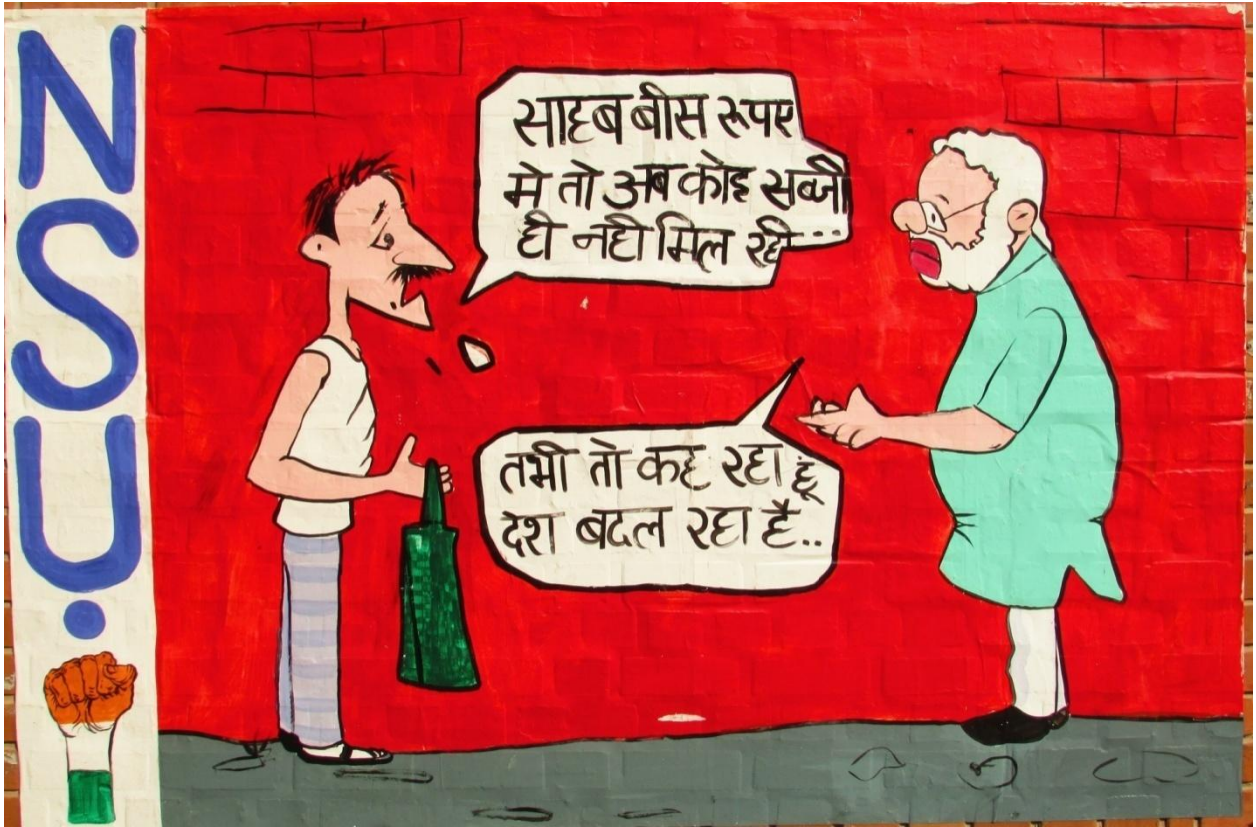 NSU
साहब बीस रूपए
मे तो अब कोइ सब्जी
ही नही मिल रही...
तभी तो कह रहा हूं
देश बदल रहा है..